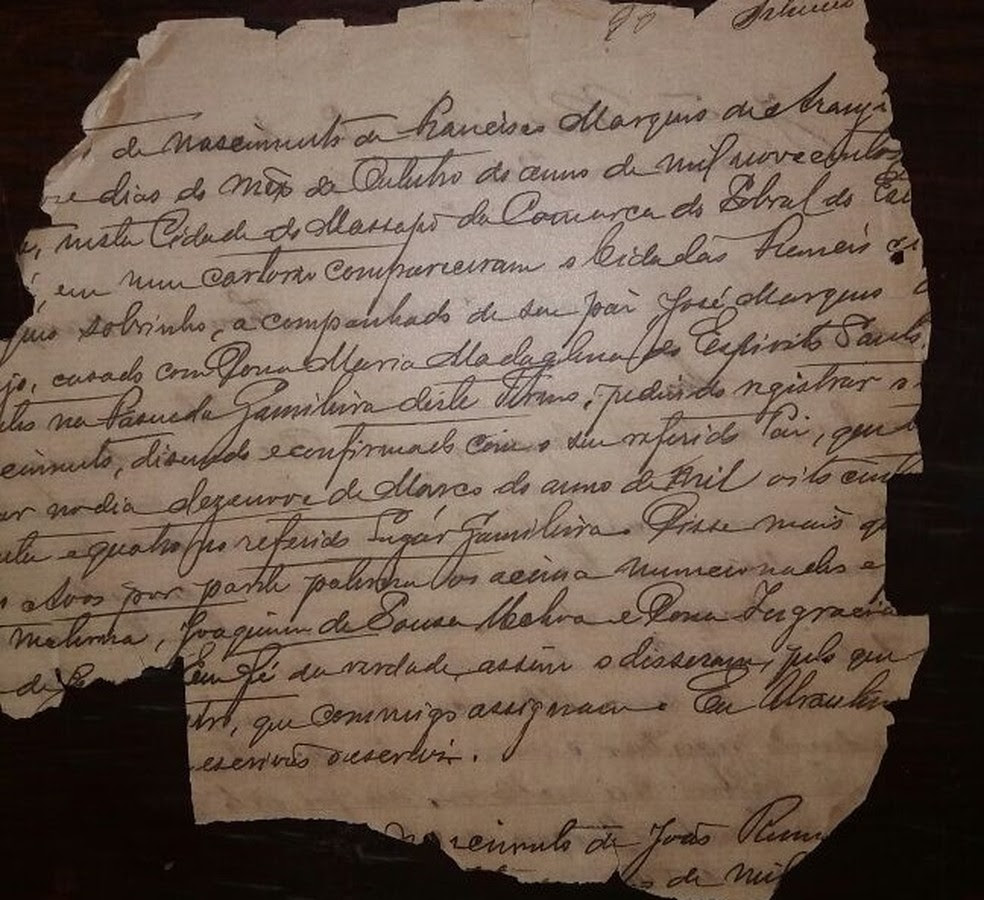 de nascimento de Francisco Marques de Arauj
se dias do mez de Outubro do anno de mil novecentos
nesta Cidade do Massapê da Comarca do Sobral do Est
em meu cartorio compareceram o Cidadão Francis
ques sobrinho, acompanhado de seu pai José Marques
jo, casado com Dona Maria Madaglena do Espirito Santo
na Fasenda Gamileira deste Termo, pedindo registrar o
cimento, disendo e confirmado com o seu referido Pai, que
ar no dia dezenove de Março do anno de Mil oito cent
nta e quatro no referido Lugar Gamileira. Disse mais q
s Avos por parte paterna os acima mencionados e
materna, Joaquim de Sousa e Dona Ingracia
de Em fé da verdade, assim o disseram, pelo que
que commigo assignam. Eu
escrivão o escrevi.
nascimento de João
de mil